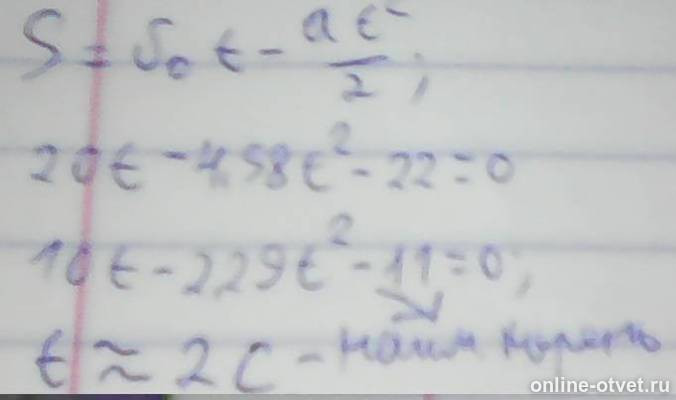 S = S₀ t - at²/2;
20t - 4,58t² - 22 = 0
10t - 2,29t² - 11 = 0;
t ≈ 2 с - наим корень
online-otvet.ru